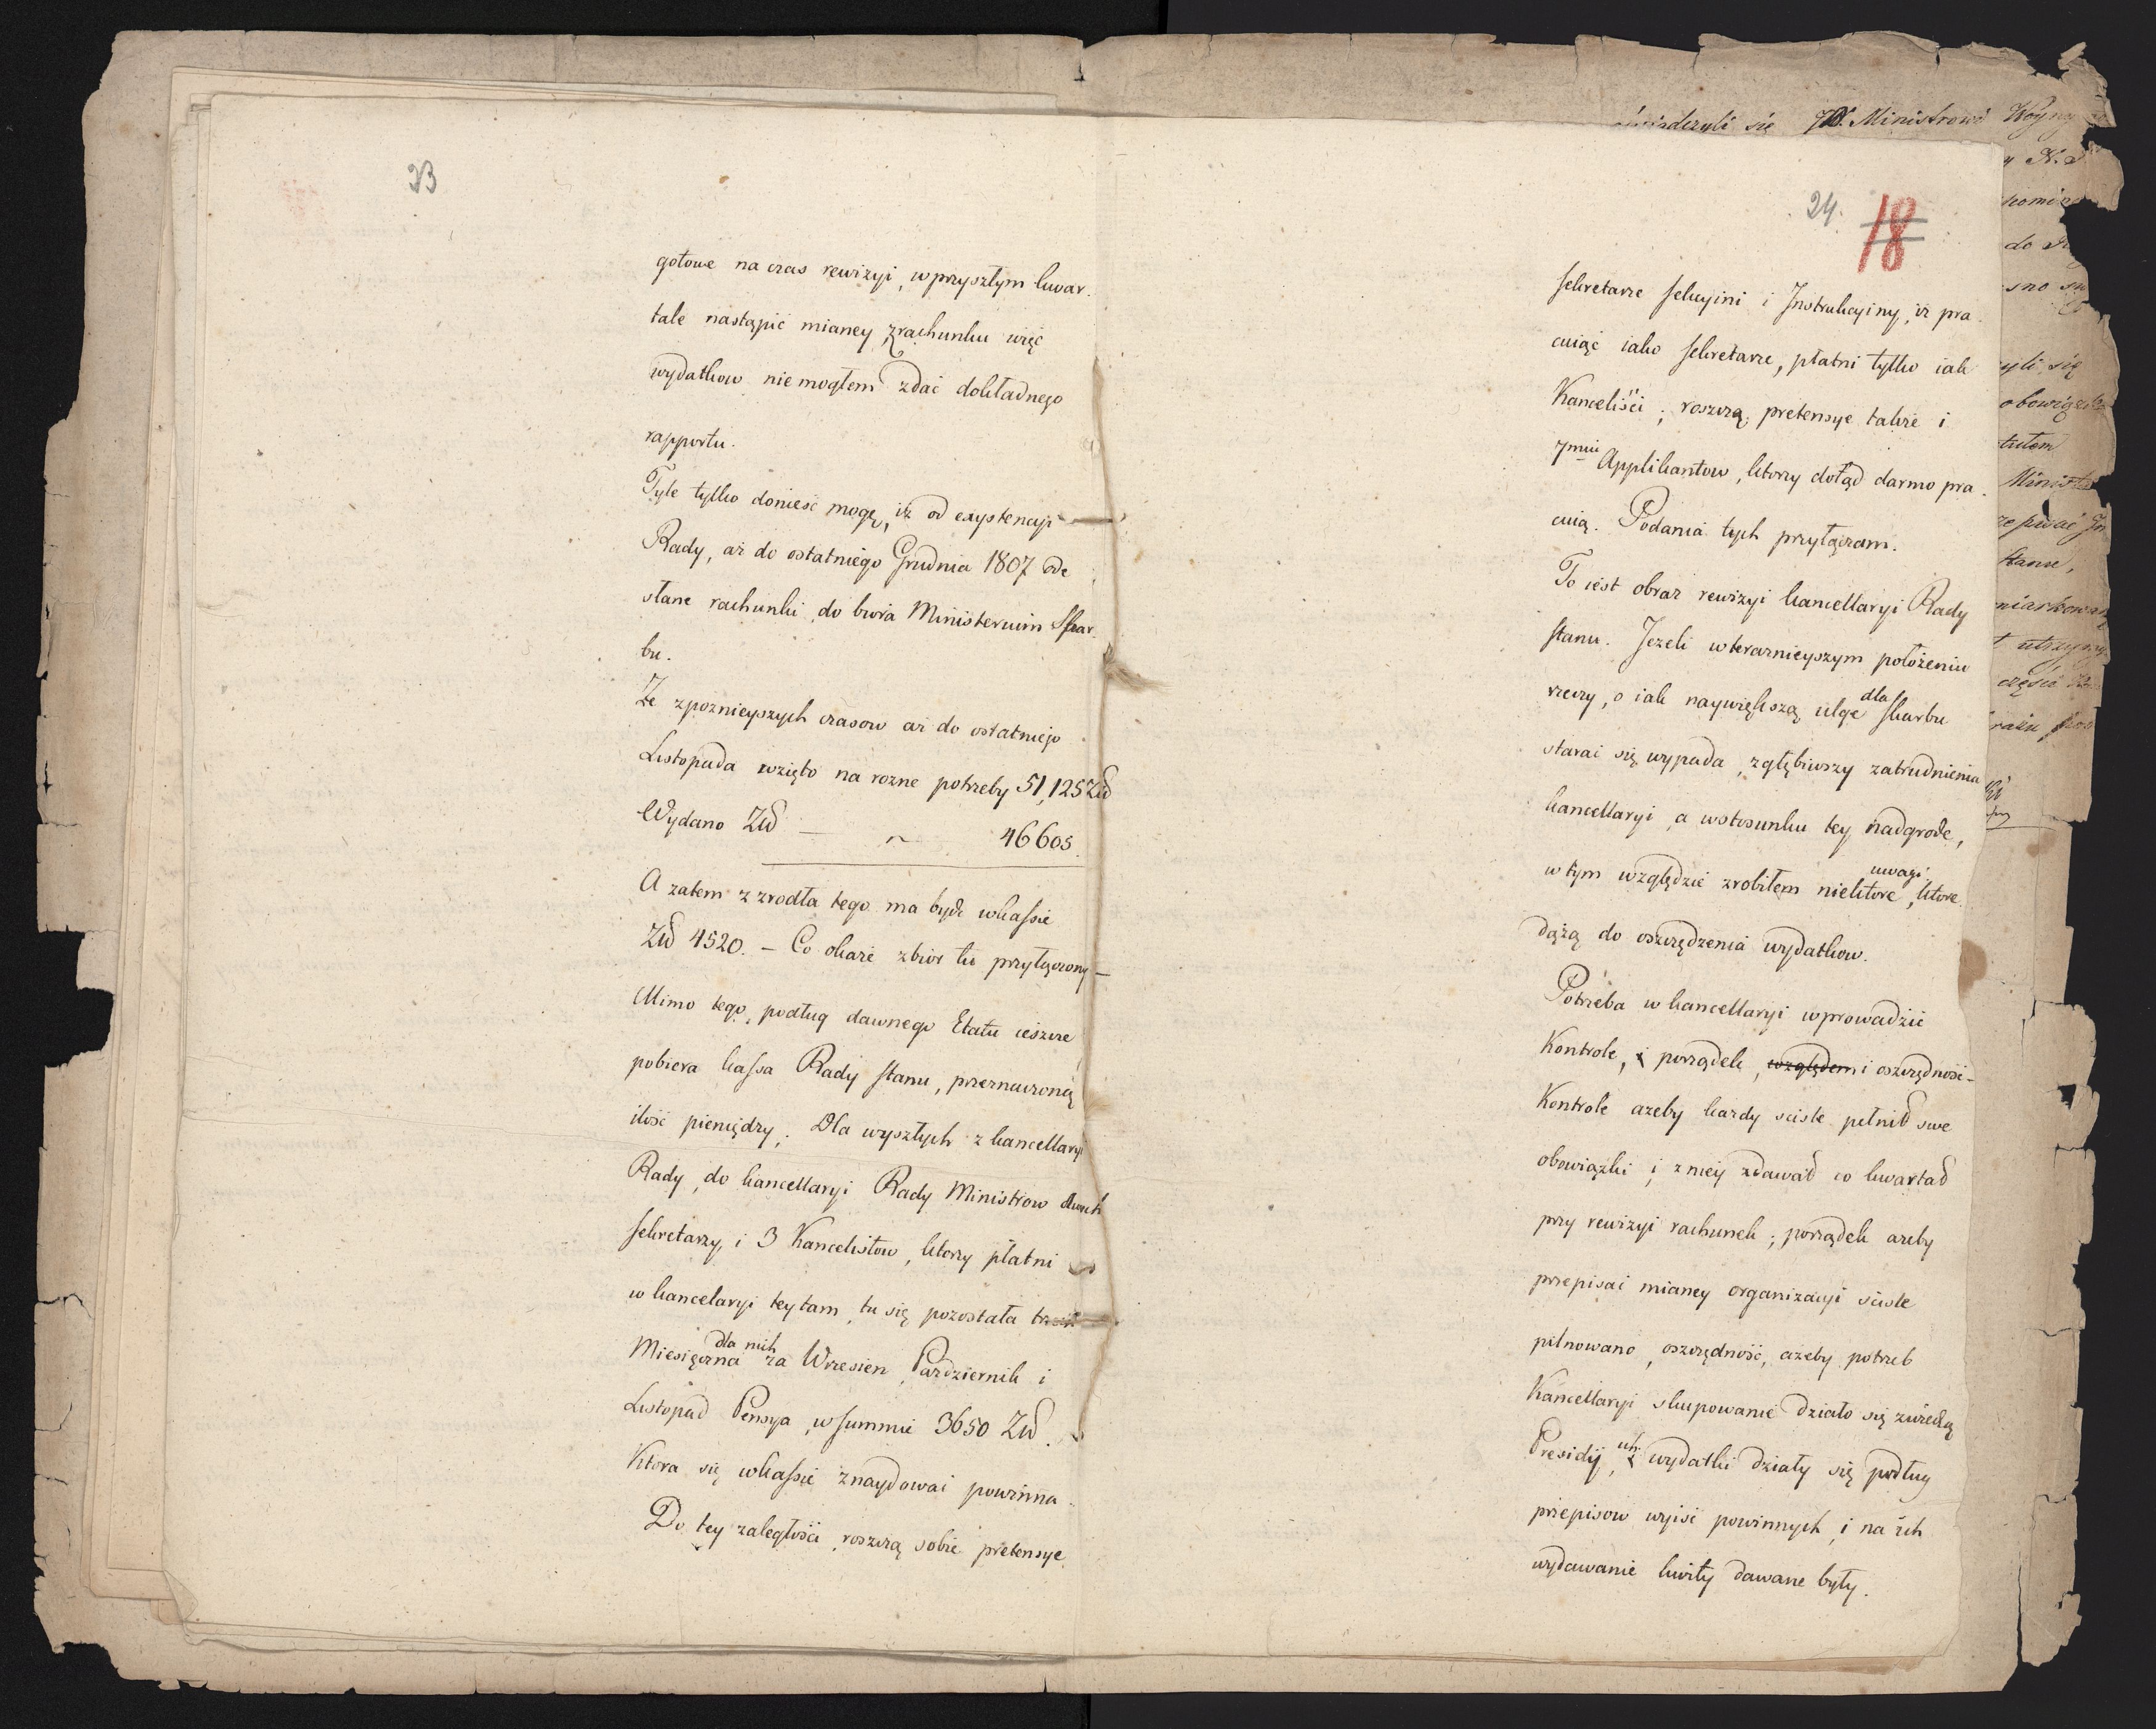 23
gotowe na czas rewizyi, w przyszłym kwar
tale nastąpić mianey, z rachunku więc
wydatkow nie mogłem zdać dokładnego
rapportu.
Tyle tylko donieść mogę, iż od exystencyi
Rady, aż do ostatniego Grudnia 1807 ode
słane rachunki do biora Ministerium Skar
bu.
Ze zpoznieyszych czasow aż do ostatniego
Listopada wzięto na rozne potrzeby 51,125 Zł
Wydano Zł — 46605.
A zatem z zrodła tego ma bydź w kassie
Zł 4520. – Co okaże zbior tu przyłączony –
Mimo tego, podług dawnego Etatu ieszcze
pobiera kassa Rady stanu, przeznaczoną
ilość pieniędzy. Dla wyszłych z kancellaryi
Rady, do kancellaryi Rady Ministrow dwuch
sekretarzy, i 3 Kancelistow, ktorzy płatni są
w kancelaryi tey tam, tu się pozostała
dla nich
Miesięczna za Wrzesien, Pazdziernik i
Listopad Pensya, w summie 3650 Zł.
Ktora się w kassie znaydować powinna.
Do tey zaległości, roszczą sobie pretensye
świadczyli się JW. Ministrowi Woyny
24. 18
sekretarze sekcyini i Instrukcyiny, iż pra
cuiąc iako sekretarze, płatni tylko iak
Kanceliści; roszczą pretensye także i
7miu Applikantow, ktorzy dotąd darmo pra
cuią. Podania tych przyłączam.
To iest obraz rewizyi kancellaryi Rady
stanu. Jeżeli w terazniejszym położeniu
rzeczy, o iak naywiększą ulgę dla skarbu
starać się wypada, zgłębiwszy zatrudnienia
kancellaryi, a w stosunku tey nadgrode,
w tym względzie zrobiłem niektore uwagi, ktore
dążą do oszczędzenia wydatkow.
Potrzeba w kancellaryi wprowadzić
Kontrole, i porządek, względem i oszczędność –
Kontrole ażeby każdy scisle pełnił swe
obowiązki i z niey zdawał co kwartał
przy rewizyi rachunek; porządek ażeby
przepisać mianey organizacyi scisle
pilnowano, oszczędność, ażeby potrzeb
Kancellaryi skupowanie działo się z wiedzą
Presidii, wydatki działy się podług
przepisow wyiść powinnych, i na ich
wydawanie kwity dawane były.